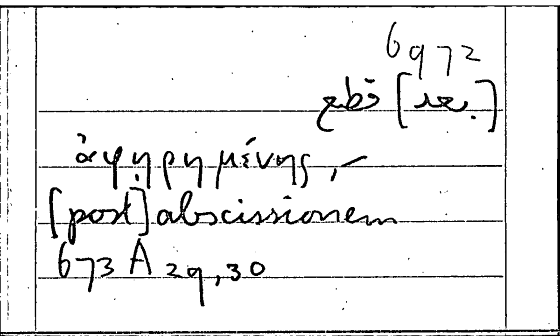 6972
abs [re.]
ἀφῃρημένης, –
[post] abscissionem
673 A 29, 30